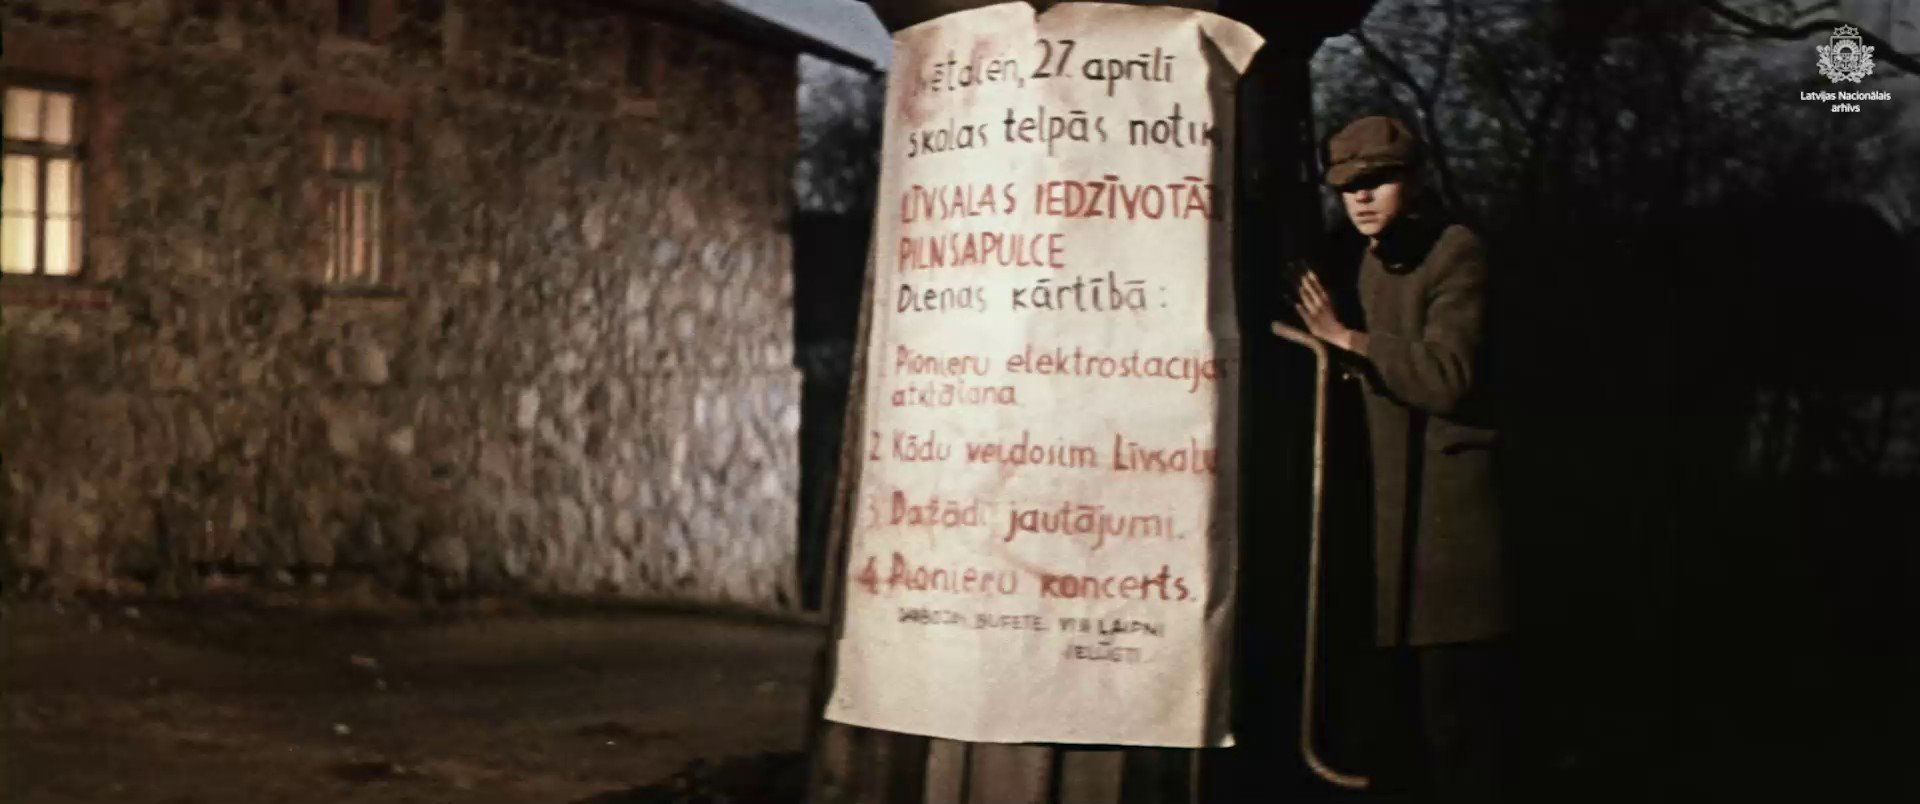 27. aprīlī
skolas telpās notik
LĪVSALAS IEDZĪVOTĀJ
PILNSAPULCE
Dienas kārtībā:
Pionieru elektrostacijas
atklāšana
2. Kādu veidosim Līvsalu
3. Dažādi jautājumi.
4. Pionieru koncerts.
BUFETE. VISI LAIPNI
IELŪGTI.
Latvijas Nacionālais
arhīvs